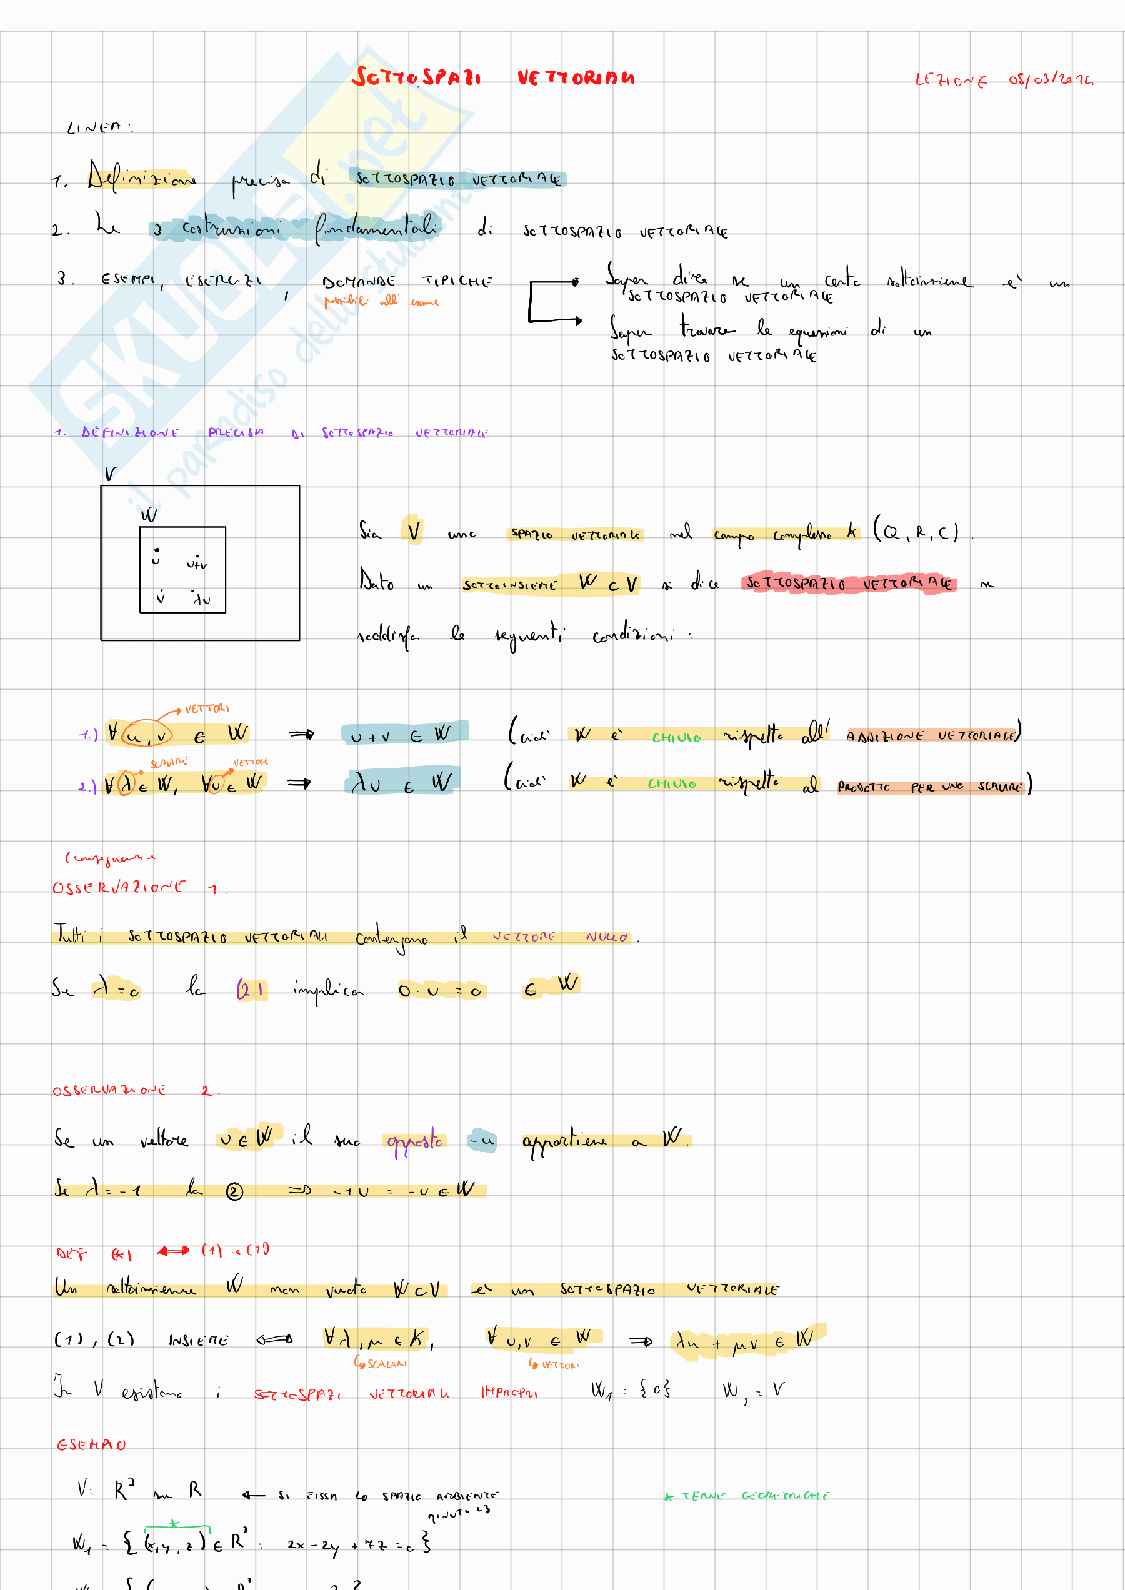 SOTTOSPAZI VETTORIALI
LEZIONE 05/03/2024
LINEA:
1. Definizione precisa di SOTTOSPAZIO VETTORIALE
2. Le 3 costruzioni fondamentali di SOTTOSPAZIO VETTORIALE
3. ESEMPI, ESERCIZI, DOMANDE TIPICHE
possibili all'esame
Saper dire se un certo sottoinsieme è un
SOTTOSPAZIO VETTORIALE
Saper trovare le equazioni di un
SOTTOSPAZIO VETTORIALE
SKUOLA.net
il paradiso dello studente
1. DEFINIZIONE PRECISA DI SOTTOSPAZIO VETTORIALE
V
W
u u+v
v λu
Sia V uno SPAZIO VETTORIALE nel campo complesso K (Q, R, C).
Dato un SOTTOINSIEME W ⊂ V si dice SOTTOSPAZIO VETTORIALE se
soddisfa le seguenti condizioni:
VETTORI
1.) ∀ u, v ∈ W ⟹ u+v ∈ W (cioè W è CHIUSO rispetto all' ADDIZIONE VETTORIALE)
SCALARI VETTORI
2.) ∀ λ ∈ W, ∀u ∈ W ⟹ λu ∈ W (cioè W è CHIUSO rispetto al PRODOTTO PER UNO SCALARE)
Conseguenze
OSSERVAZIONE 1.
Tutti i SOTTOSPAZIO VETTORIALI contengono il VETTORE NULLO.
Se λ=0 la (2) implica 0·u = 0 ∈ W
OSSERVAZIONE 2.
Se un vettore u ∈ W il suo opposto -u appartiene a W.
Se λ = -1 la ② ⟹ -1u = -u ∈ W
DEF (*) ⟺ (1) e (2)
Un sottoinsieme W non vuoto W ⊂ V è un SOTTOSPAZIO VETTORIALE
(1), (2) INSIEME ⟺ ∀ λ, μ ∈ K, ∀ u,v ∈ W ⟹ λu + μv ∈ W
SCALARI VETTORI
In V esistono i SOTTOSPAZI VETTORIALI IMPROPRI W₁ = {0} W₂ = V
ESEMPIO
V: R³ su R ← SI FISSA LO SPAZIO AMBIENTE
* TERNE GEOMETRICHE
MINUTO 23
*
W₁ = {(x, y, z) ∈ R³ : 2x - 2y + 7z = 0}